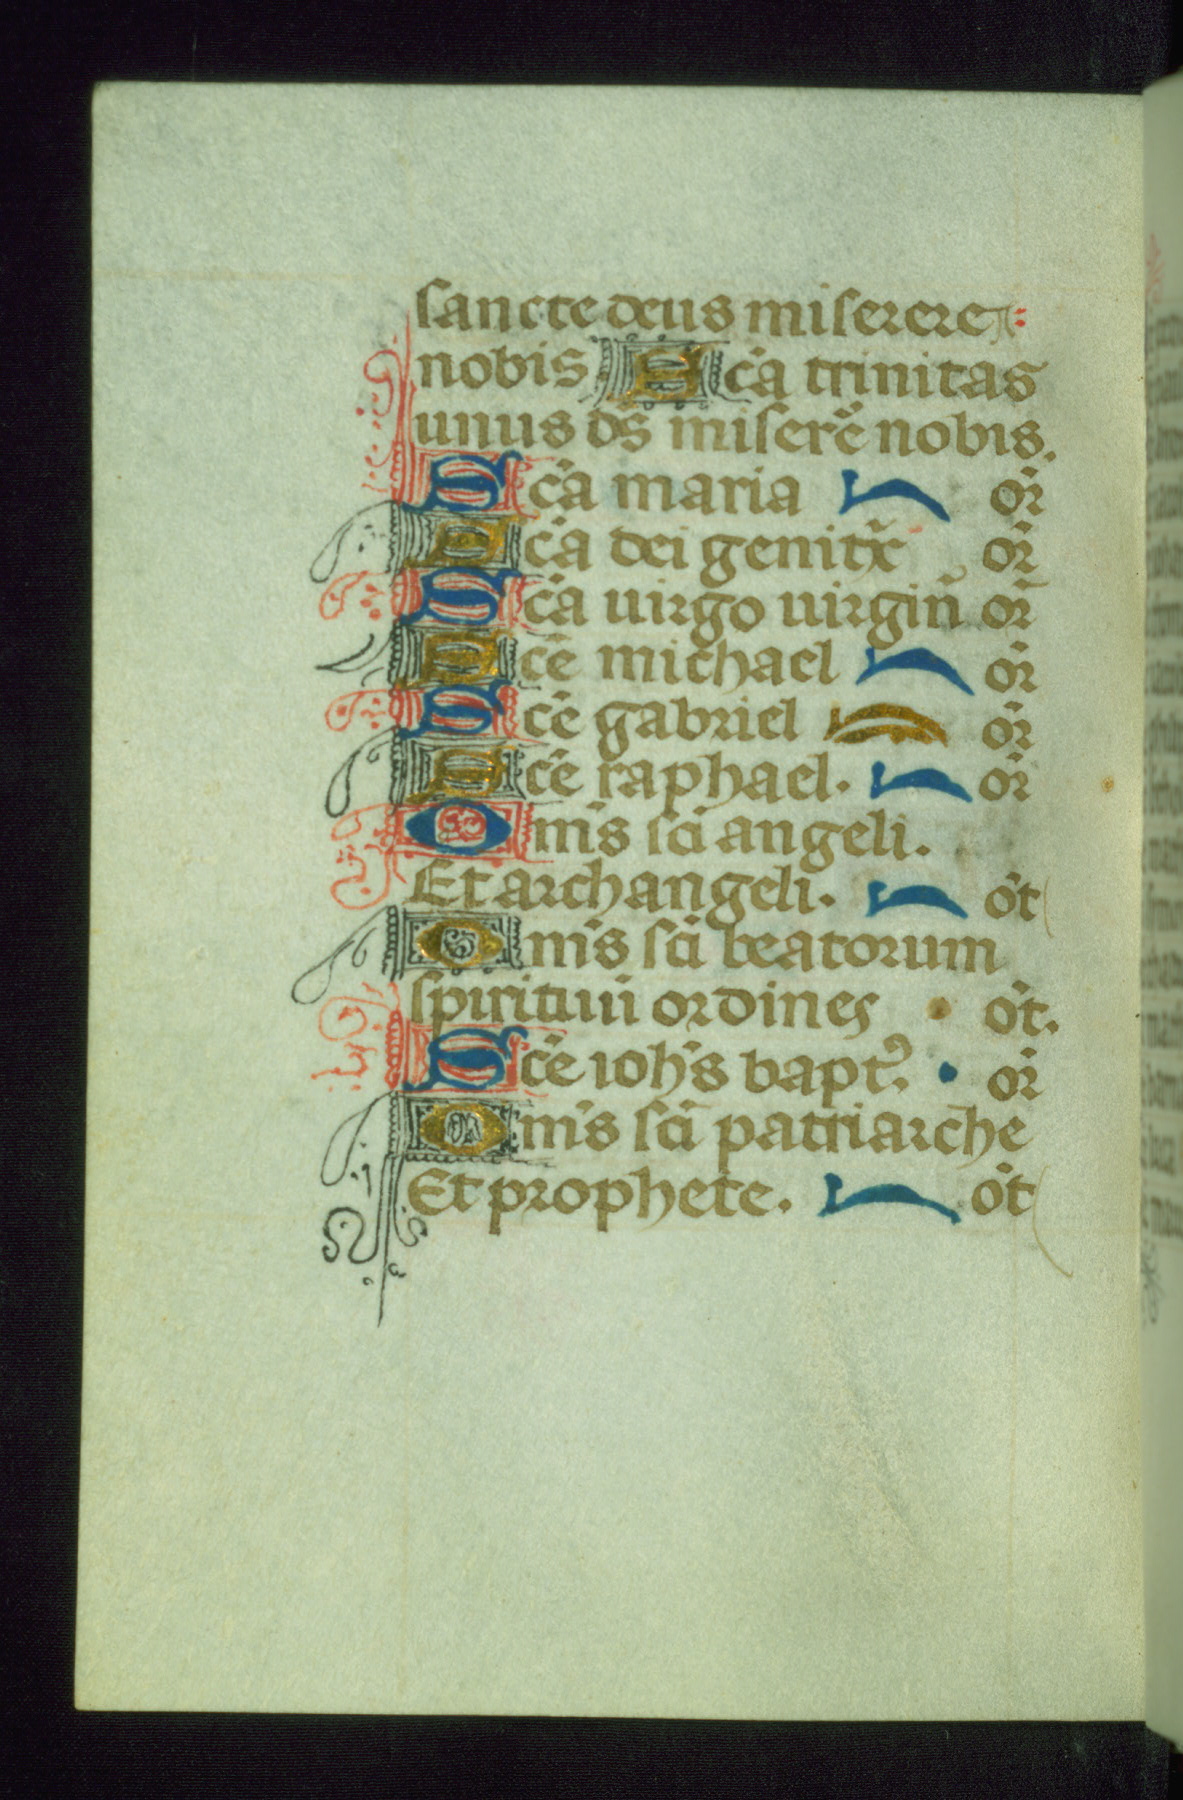 sancte deus miserere
nobis Sc̄a trinitas
unus ds̄ miserē nobis.
Sc̄a maria or̄
Sc̄a dei genitx̄ or̄
Sc̄a uirgo uirgin̄ or̄
Sc̄e michael or̄
Sc̄e gabriel or̄
Sc̄e raphael. or̄
Om̄s sc̄i angeli.
Et archangeli. ōt
Om̄s sc̄i beatorum
spirituū ordines ōt.
Sc̄e ioh̄s bapt᷒. or̄
Om̄s sc̄i patriarche
Et prophete. ōt